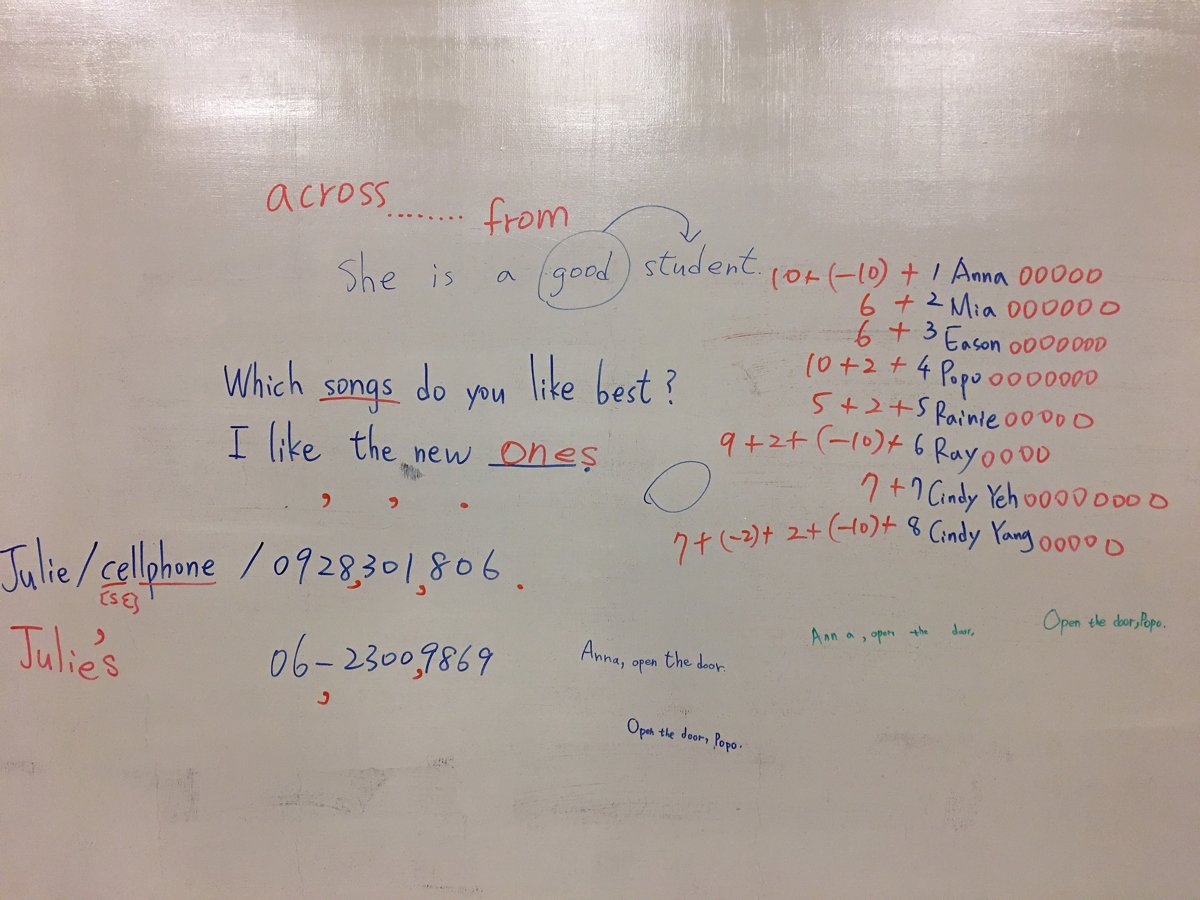 across........ from
She is a good student.
Which songs do you like best?
I like the new ones
, , .
Julie/cellphone / 0928,301,806.
[sɛ]
Julie's
06-2300,9869
,
10+(-10) + 1 Anna OOOOO
6 + 2 Mia OOOOOO
6 + 3 Eason OOOOOOO
10+2 + 4 Popo OOOOOOO
5 + 2 + 5 Rainie OOOOO
9 + 2 + (-10) + 6 Ray OOOO
7 + 7 Cindy Yeh OOOOOOOO
7 + (-2) + 2 + (-10) + 8 Cindy Yang OOOOO
Anna, open the door.
Open the door, Popo.
Anna, open the door.
Open the door, Popo.